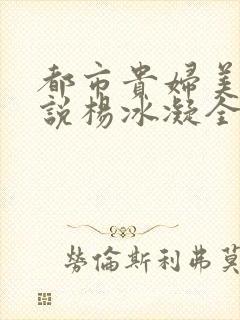 都市貴婦美
說楊冰凝全
勞倫斯利弗莫